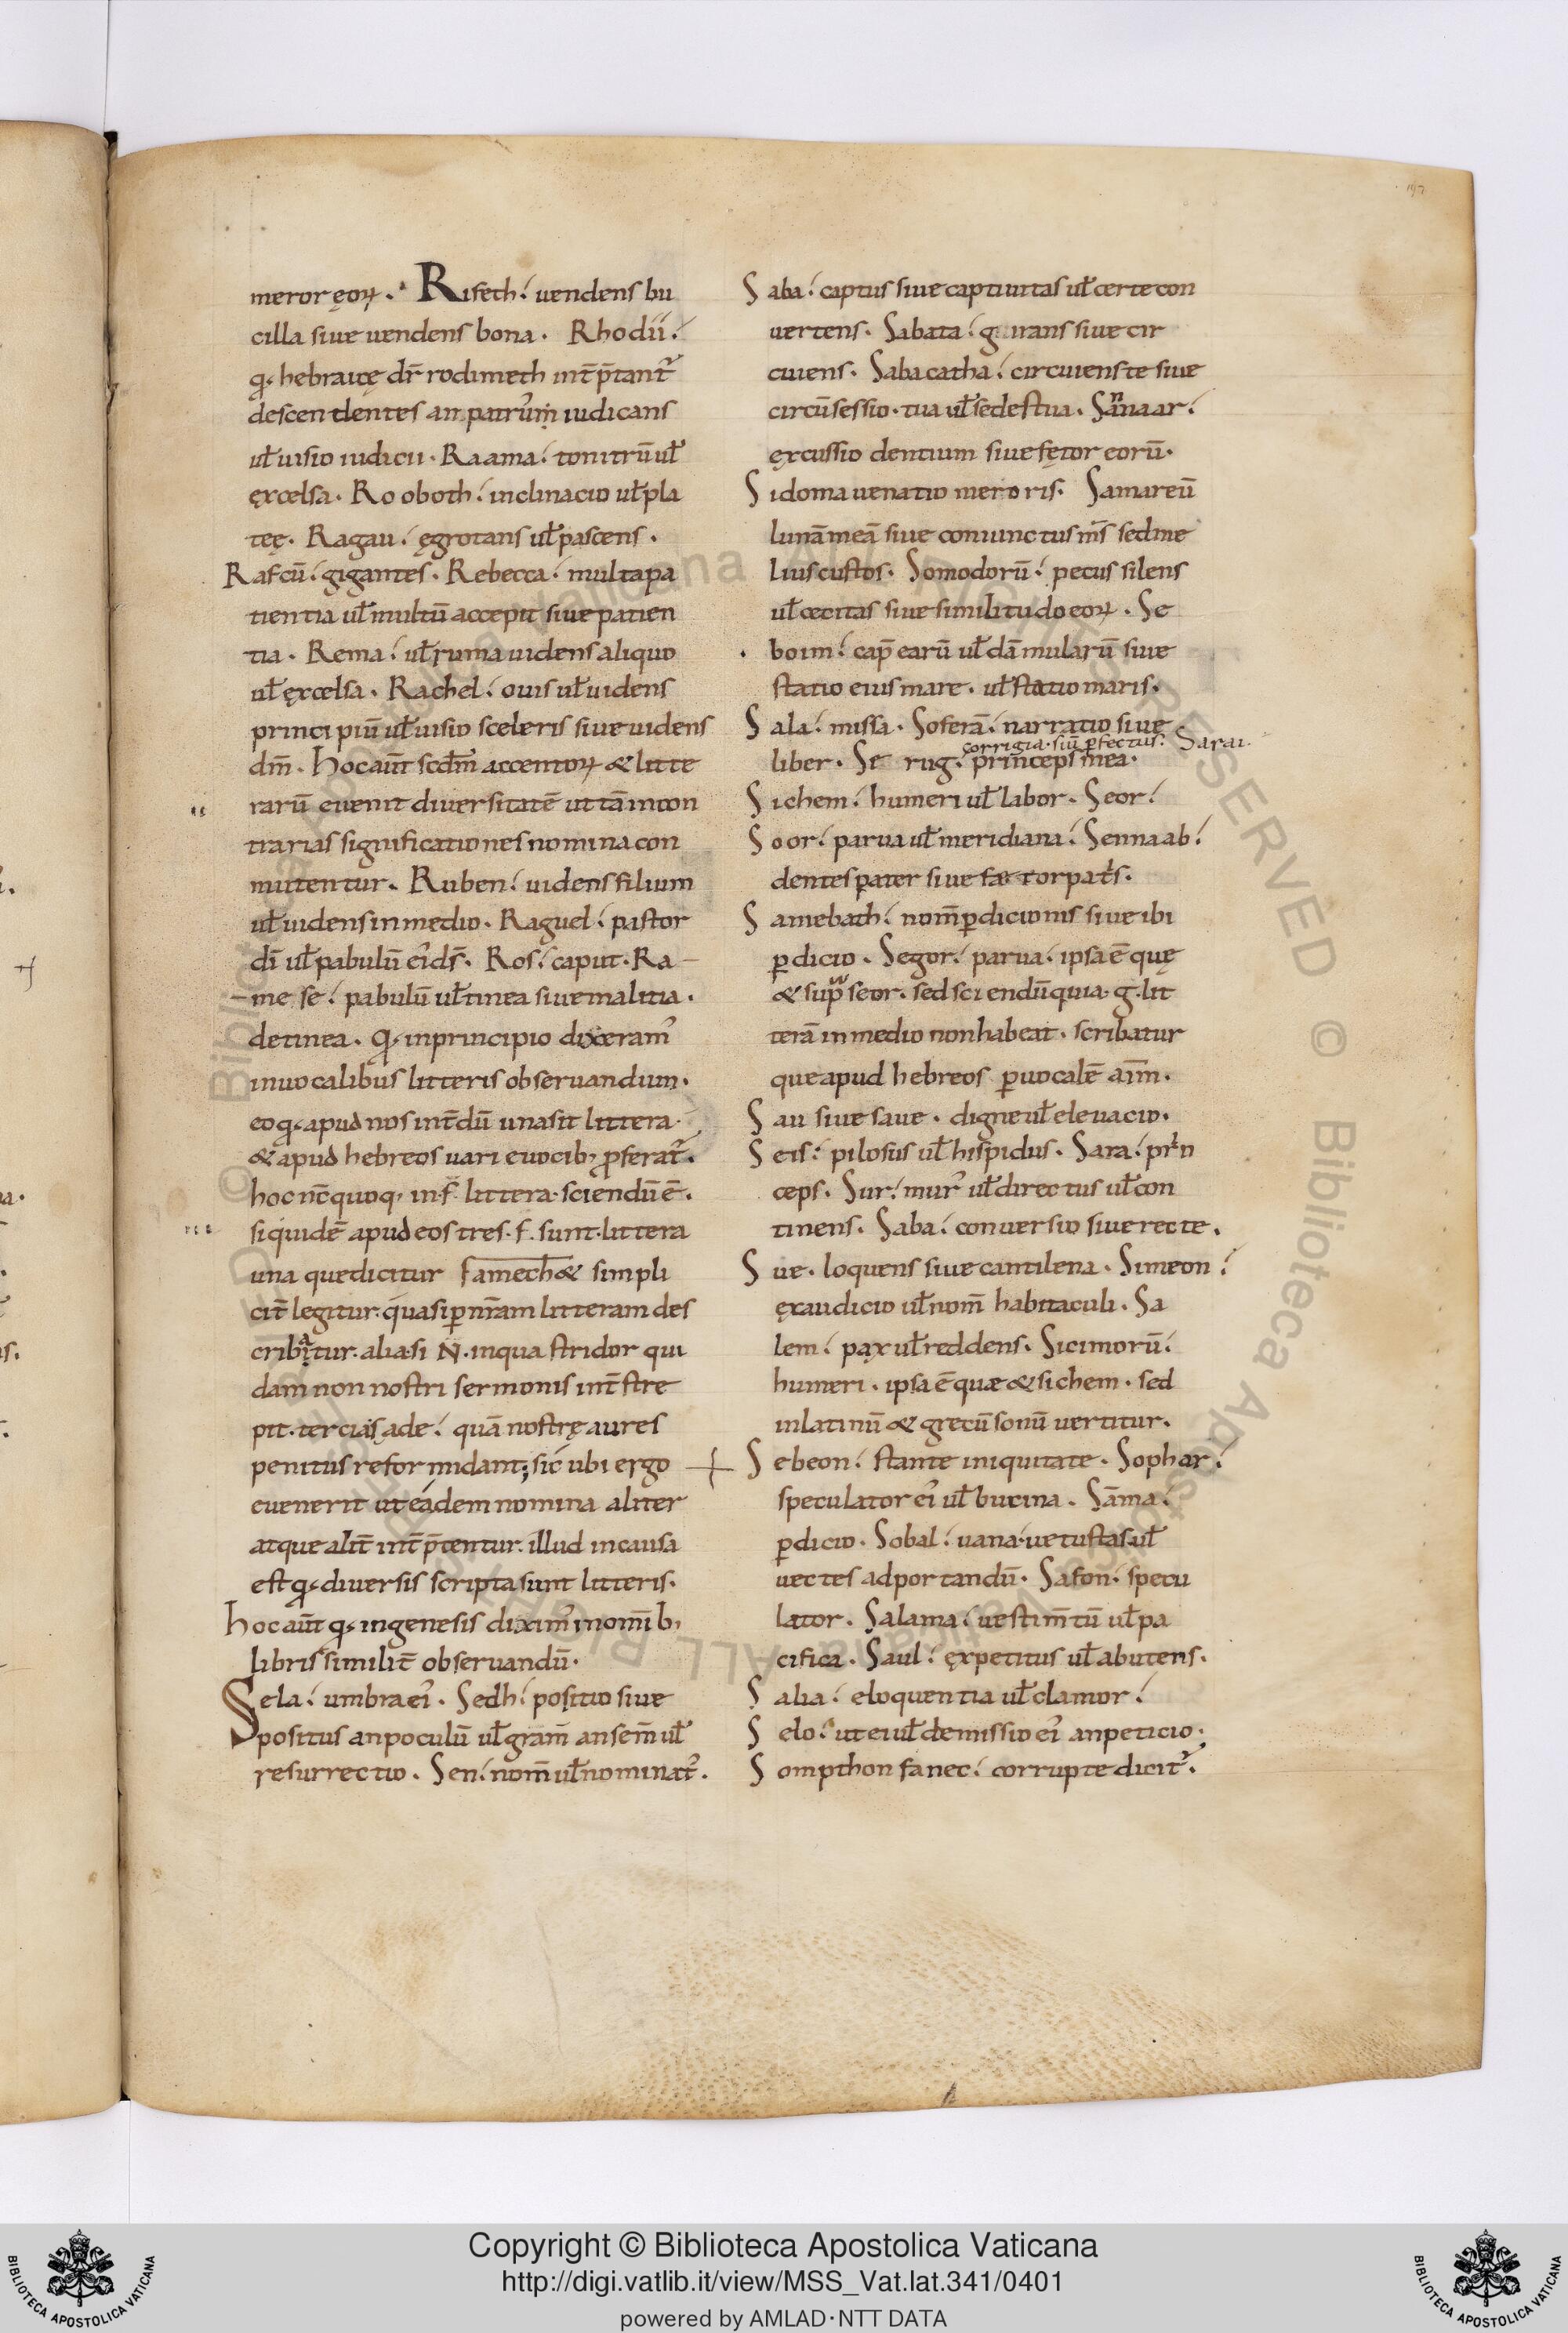 meror ęoꝝ. Rifeth. uendens bu
cilla siue uendens bona. Rhodii.
q; hebraicę dr̄ rodimeth int̄p̄tant᷑
descendentes an patrum iudicans
uł uisio iudicii. Raama. tonitrū uł
ęxcelsa. Rooboth. inclinacio uł pla
teę. Ragau. ęgrotans uł pascens.
Rafcū. gigantes. Rebecca. multa pa
tientia uł multū accepit siue patien
tia. Rema. uł ruma uidens aliquo
uł ęxcelsa. Rachel. ouis uł uidens
principiū uł uisio sceleris siue uidens
dm̄. Hoc aūt scdm̄ accentoꝝ & litte
rarū euenit diuersitatē ut tā in con
trarias significationes nomina con
mutentur. Ruben. uidens filium
uł uidens in medio. Raguel. pastor
dī uł pabulū ei᷒ ds̄. Ros. caput. Ra
me se. pabulū uł tinea siue malitia.
de tinea. Q; in principio dixeram᷒
in uocalibus litteris obseruandum.
eo q; apud nos int̄dū una sit littera.
& apud hebreos uari e uocib; ꝓferat᷑.
hoc nc̄ quoq; in .f. littera. sciendū ē.
siquidē apud eos tres .f. sunt. littera
una que dicitur samech & simpli
cit̄ legitur. quasi ꝑ nr̄am litteram des
cribitur. alia. si N. in qua stridor qui
dam non nostri sermonis int̄ stre
pit. tercia sade. quā nostrę aures
penitus reformidant; sic ubi ergo
euenerit ut eadem nomina aliter
atque alit̄ int̄p̄tentur. illud in causa
est q; diuersis scripta sunt litteris.
Hoc aūt q; in genesis diximꝰ in om̄ib;
libris similit̄ obseruandū.
Sela. umbra ei᷒. Sedh. positio siue
positus an poculū uł gram̄ an sem̄ uł
resurrectio. Sen. nom̄ uł nominat᷑.
Saba. captus siue captiuitas uł certe con
uertens. Sabata. girans siue cir
cuiens. Sabacatha. circuiens te siue
circūsessio. tua uł sedes tua. Sannaar.
ęxcussio dentium siue fętor eorū.
Sidoma uenatio meroris. Samareū
lunā meā siue coniunctus ms̄ sed me
lius custos. Somodorū. pecus silens
uł cecitas siue similitudo eoꝝ. Se
boim. cap̄earū uł dāmularū siue
statio eius mare. uł statio maris.
Sala. missa. Soferā. narratio siue
corrigia. siū ꝑfectus. Sarai.
liber. Se rug. princeps mea.
Sichem. humeri uł labor. Seor.
Soor. parua uł meridiana. Sennaab.
dentes pater siue fætor pat̄s.
Samebath. nom̄ ꝑdicionis siue ibi
ꝑdicio. Segor. parua. ipsa ē quę
& sup̄ seor. sed sciendū quia .g. lit
terā in medio non habeat. scribatur
que apud hebreos ꝑ uocalē aim̄.
Sau siue saue. digne uł eleuacio.
Seis. pilosus uł hispidus. Sara. prin
ceps. Sur. mur᷒ uł directus uł con
tinens. Saba. conuersio siue recte.
Sue. loquens siue cantilena. Simeon.
ęxaudicio uł nom̄ habitaculi. Sa
lem. pax uł reddens. Sicimorū.
humeri. ipsa ē quæ & sichem. sed
in latinū & grecū sonū uertitur.
Sebeon. stante iniquitate. Sophar.
speculator ei᷒ uł bucina. Sāma.
ꝑdicio. Sobal. uana. uetustas uł
uectes ad portandū. Safon. specu
lator. Salama. uestim̄tū uł pa
cifica. Saul. ęxpetitus uł abutens.
Salia. eloquentia uł clamor.
Selo. ut ei uł demissio ei᷒ an peticio.
Sompthon fanec. corrupte dicit᷑.
Copyright © Biblioteca Apostolica Vaticana
http://digi.vatlib.it/view/MSS_Vat.lat.341/0401
powered by AMLAD·NTT DATA